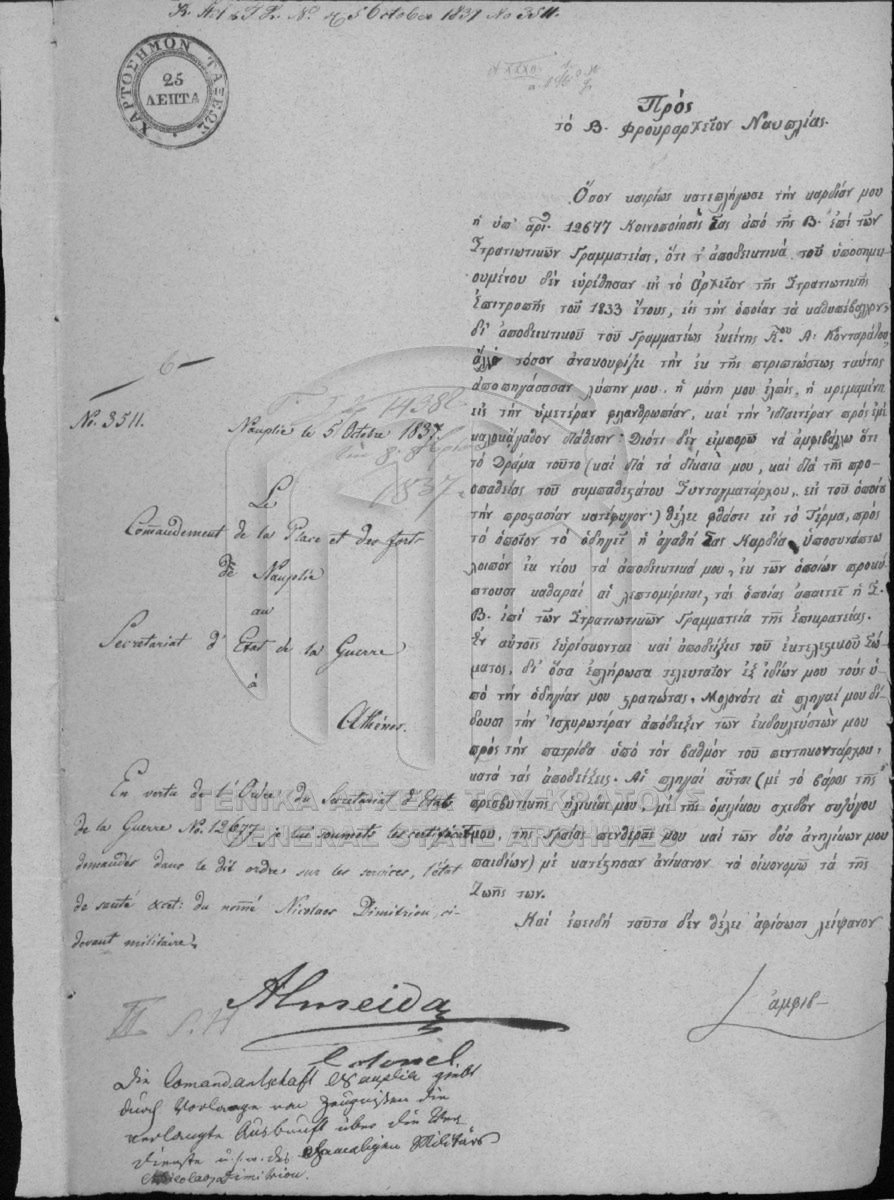 5 October 1837 No 3511.
ΧΑΡΤΟΣΗΜΟΝ ΤΑΞΕΩΣ
25
ΛΕΠΤΑ
Πρὸς
τὸ Β. Φρουραρχεῖον Ναυπλίας.
Ὅσον καιρίως κατεπλήγωσε τὴν καρδίαν μου
ἡ ὑπ' ἀρι. 12677 Κοινοποίησίς Σας ἀπὸ τῆς Β. ἐπὶ τῶν
Στρατιωτικῶν Γραμματείας, ὅτι τ' ἀποδεικτικά τοῦ ὑποσημει-
ουμένου δὲν εὑρέθησαν εἰς τὸ Ἀρχεῖον τῆς Στρατιωτικῆς
Ἐπιτροπῆς τοῦ 1833 ἔτους, εἰς τὴν ὁποίαν τὰ καθυπέβαλλον
δι' ἀποδεικτικοῦ τοῦ Γραμματέως ἐκείνης Κ.ου Α. Κονταράτου
ἄλλο τόσον ἀνακουφίζει τὴν ἐκ τῆς περιπτώσεως ταύτης
ἀποπηγάσασαν λύπην μου, ἡ μόνη μου ἐλπὶς, ἡ κρεμαμένη
εἰς τὴν ὑμετέραν φιλανθρωπίαν, καὶ τὴν ἰδιαιτέραν πρὸς ἐμὲ
καλοκάγαθον διάθεσιν· Διότι δὲν εἰμπορῶ νὰ ἀμφιβάλλω ὅτι
τὸ Δρᾶμα τοῦτο (καὶ διὰ τὰ δίκαιά μου, καὶ διὰ τῆς προ-
σπαθείας τοῦ συμπαθεστάτου Συνταγματάρχου, εἰς τοῦ ὁποίου
τὴν προστασίαν κατέφυγον) θέλει φθάσει εἰς τὸ Τέρμα, πρὸς
τὸ ὁποῖον τὸ ὁδηγεῖ ἡ ἀγαθή Σας Καρδία, ὑποσυνάπτω
λοιπὸν ἐκ νέου τὰ ἀποδεικτικά μου, ἐκ τῶν ὁποίων προκύ-
πτουσι καθαραὶ αἱ λεπτομέρειαι, τὰς ὁποίας ἀπαιτεῖ ἡ
Β. ἐπὶ τῶν Στρατιωτικῶν Γραμματεία τῆς Ἐπικρατείας.
Ἐν αὐτοῖς εὑρίσκονται καὶ ἀποδείξεις τοῦ ἐκτελεστικοῦ Σώ-
ματος, δι' ὅσα ἐπλήρωσα τελευταῖον ἐξ ἰδίων μου τοὺς ὑ-
πὸ τὴν ὁδηγίαν μου στρατιώτας. Μολονότι αἱ πληγαί μου δί-
δουσι τὴν ἰσχυρωτέραν ἀπόδειξιν τῶν ἐκδουλεύσεών μου
πρὸς τὴν πατρίδα ὑπὸ τὸν βαθμὸν τοῦ πεντηκοντάρχου,
κατὰ τὰς ἀποδείξεις. Αἱ πληγαὶ αὗται (μὲ τὸ βάρος τῆς
πρεσβυτικῆς ἡλικίας μου, μὲ τῆς ὁμηλίκου σχεδὸν συζύγου
μου, τῆς Γραίας πενθερᾶς μου καὶ τῶν δύο ἀνηλίκων μου
παιδίων) μὲ κατέστησαν ἀνίκανον νὰ οἰκονομῶ τὰ τῆς
Ζωῆς των.
Καὶ ἐπειδὴ ταῦτα δὲν θέλει ἀφίσωσι λείψανον
ἀμφιβ-
6
No. 3511.
Nauplie le 5 Octobre 1837.
14382
1837
Le
Commandement de la Place et des forts
de Nauplie
au
Secretariat d'Etat de la Guerre
à
Athènes.
En vertu de l'Ordre du Secretariat d'Etat
de la Guerre No. 12677, je lui soumets les certificats
demandés dans le dit ordre, sur les services, l'état
de santé &cet: du nommé Nicolaos Dimitriou, ci-
devant militaire.
Almeida
Colonel
Die Comandantschaft Nauplia giebt
durch Vorlage von Zeugnissen die
verlangte Auskunft über die Ver
dienste u.s.w. des ehemaligen Militärs
Nicolaos Dimitriou.
ΓΕΝΙΚΑ ΑΡΧΕΙΑ ΤΟΥ ΚΡΑΤΟΥΣ
GENERAL STATE ARCHIVES